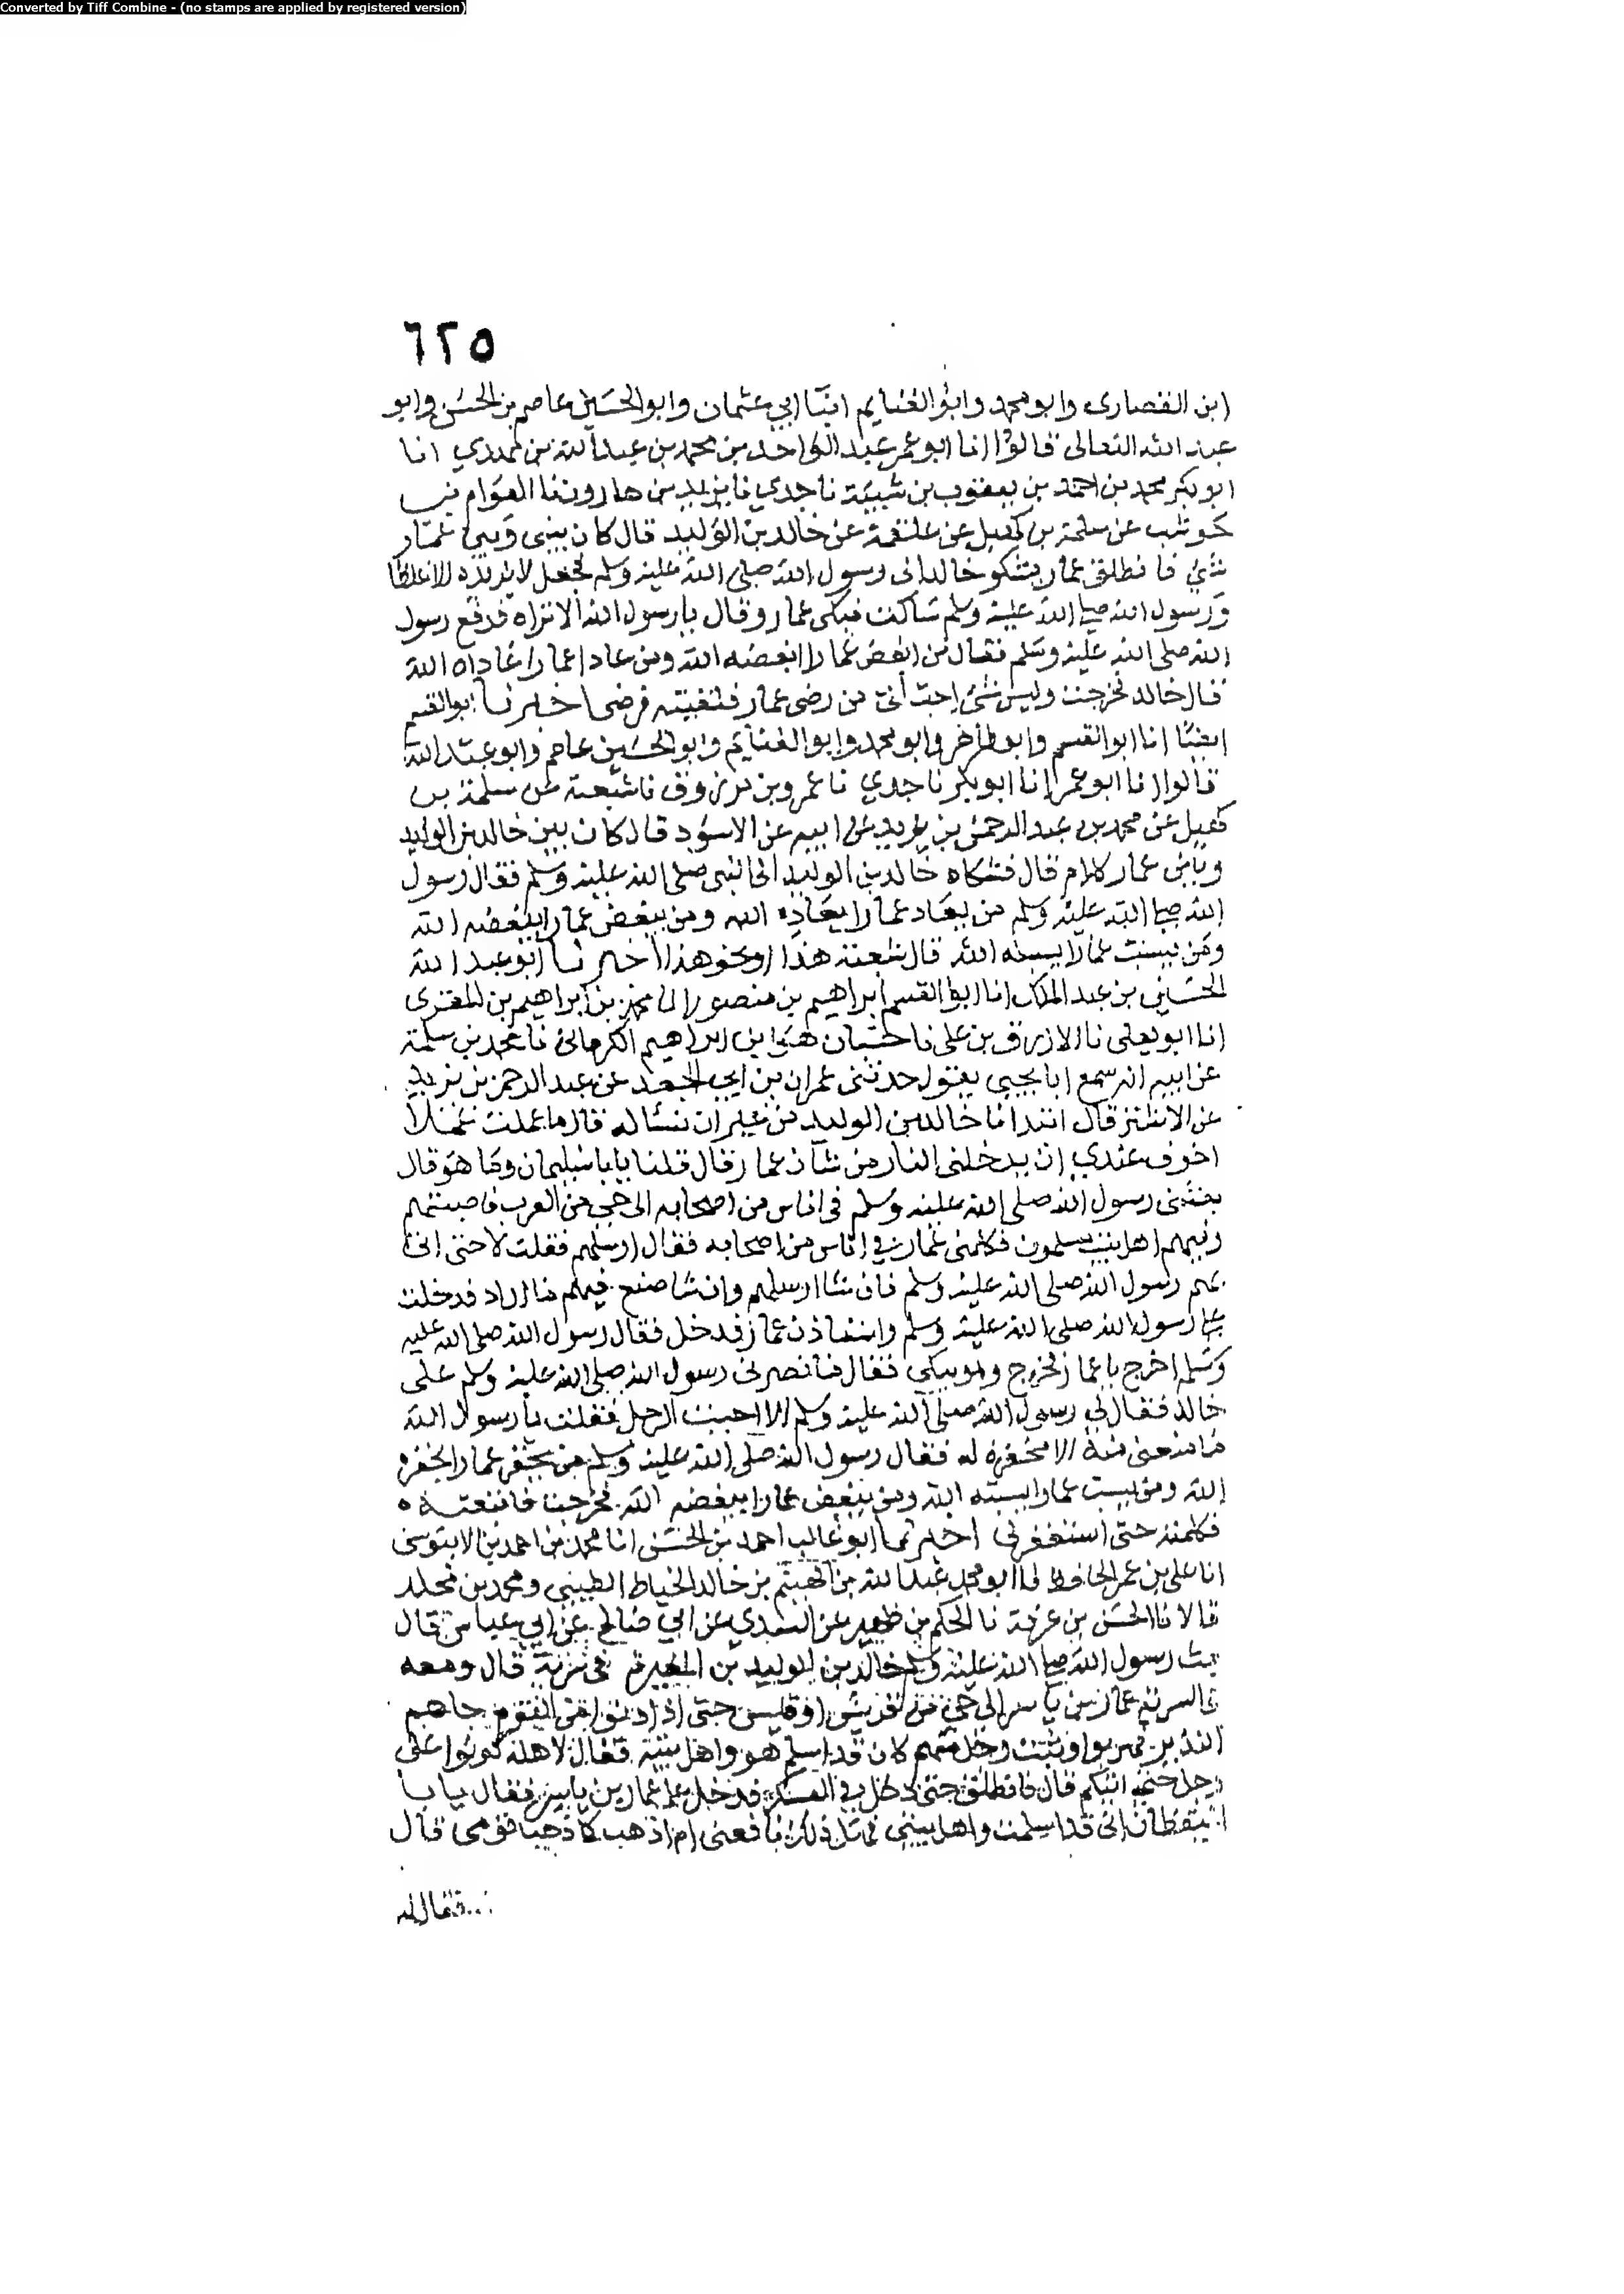 Converted by Tiff Combine - (no stamps are applied by registered version)
٦٢٥
ابن القصارى وابو محمد وابو الغنايم ابنا ابي عثمان وابو الحسين عاصم بن الحسن وابو
عبد الله النعالى قالوا انا ابو عمر عبد الواحد بن محمد بن عبد الله بن مهدي انا
ابو بكر محمد بن احمد بن يعقوب بن شيبة نا جدي نا يزيد بن هارون نا العوام بن
حوشب عن سلمة بن كهيل عن علقمة عن خالد بن الوليد قال كان بيني وبين عمار
شيء فانطلق عمار يشكو خالدا الى رسول الله صلى الله عليه وسلم فجعل لا يزيده الا غلظا
ورسول الله صلى الله عليه وسلم ساكت فبكى عمار وقال يا رسول الله الا تراه فرفع رسول
الله صلى الله عليه وسلم فقال من ابغض عمارا ابغضه الله ومن عادا عمارا عاداه الله
قال خالد فخرجت وليس شئ احب الى من رضى عمار فلقيته فرضى اخبرنا ابو القسم
ايضا انا ابو القسم وابو طاهر وابو محمد وابو الغنايم وابو الحسين عاصم وابو عبد الله
قالوا انا ابو عمر انا ابو بكر نا جدي نا عمرو بن مرزوق نا شعبة عن سلمة بن
كهيل عن محمد بن عبد الرحمن بن يزيد عن ابيه عن الاسود قال كان بين خالد بن الوليد
وبين عمار كلام قال فشكاه خالد بن الوليد الى النبي صلى الله عليه وسلم فقال رسول
الله صلى الله عليه وسلم من يعاد عمارا يعاده الله ومن يبغض عمارا يبغضه الله
ومن يسب عمارا يسبه الله قال شعبة هذا او نحو هذا اخبرنا ابو عبد الله
الحسين بن عبد الملك انا ابو القسم ابراهيم بن منصور انا محمد بن ابراهيم بن المقرى
انا ابو يعلى نا الازرق بن على نا حسان هو ابن ابراهيم الكرمانى نا محمد بن سلمة
عن ابيه انه سمع ابا يحيى يقول حدثنى عمران بن ابي الجعد عن عبد الرحمن بن يزيد
عن الاشتر قال ابتدانا خالد بن الوليد من غير ان نسأله قال ما عملت عملا
اخوف عندي ان يدخلنى النار من شأن عمار قال قلنا يابا سليمان وما هو قال
بعثنى رسول الله صلى الله عليه وسلم فى اناس من اصحابه الى حى من العرب فاصبتهم
وفيهم اهل بيت مسلمون فكلمنى عمار في اناس من اصحابه فقال ارسلهم فقلت لا حتى اتى
بهم رسول الله صلى الله عليه وسلم فان شا ارسلهم وان شا صنع فيهم ما اراد فدخلت
على رسول الله صلى الله عليه وسلم واستاذن عمار فدخل فقال رسول الله صلى الله عليه
وسلم اخرج يا عمار فخرج وهو يبكي فقال ما نصرنى رسول الله صلى الله عليه وسلم على
خالد فقال لي رسول الله صلى الله عليه وسلم الا اجبت الرجل فقلت يا رسول الله
ما منعنى منه الا محقرة له فقال رسول الله صلى الله عليه وسلم من يحقر عمارا يحقره
الله ومن يسب عمارا يسبه الله ومن يبغض عمارا يبغضه الله فخرجت فاتبعته
فكلمته حتى استغفر لى اخبرنا ابو غالب احمد بن الحسن انا محمد بن احمد بن الابنوسى
انا على بن عمر الحافظ نا ابو محمد عبد الله بن الهيثم بن خالد الخياط الطينى ومحمد بن مخلد
قالا نا الحسن بن عرفة نا الحكم بن ظهير عن السدي عن ابي صالح عن ابن عباس قال
بعث رسول الله صلى الله عليه وسلم خالد بن الوليد بن المغيرة فى سرية قال ومعه
فى السرية عمار بن ياسر الى حى من قريش او قيس حتى اذا دنوا من القوم جاهم
النذير فهربوا وثبت رجل منهم كان قد اسلم هو واهل بيته فقال لاهله كونوا على
رجل حتى اتيكم قال فانطلق حتى دخل في العسكر فدخل على عمار بن ياسر فقال يابا
اليقظان انى قد اسلمت واهل بيتى فهل ذلك نافعى ام اذهب كما ذهب قومى قال
فقال له